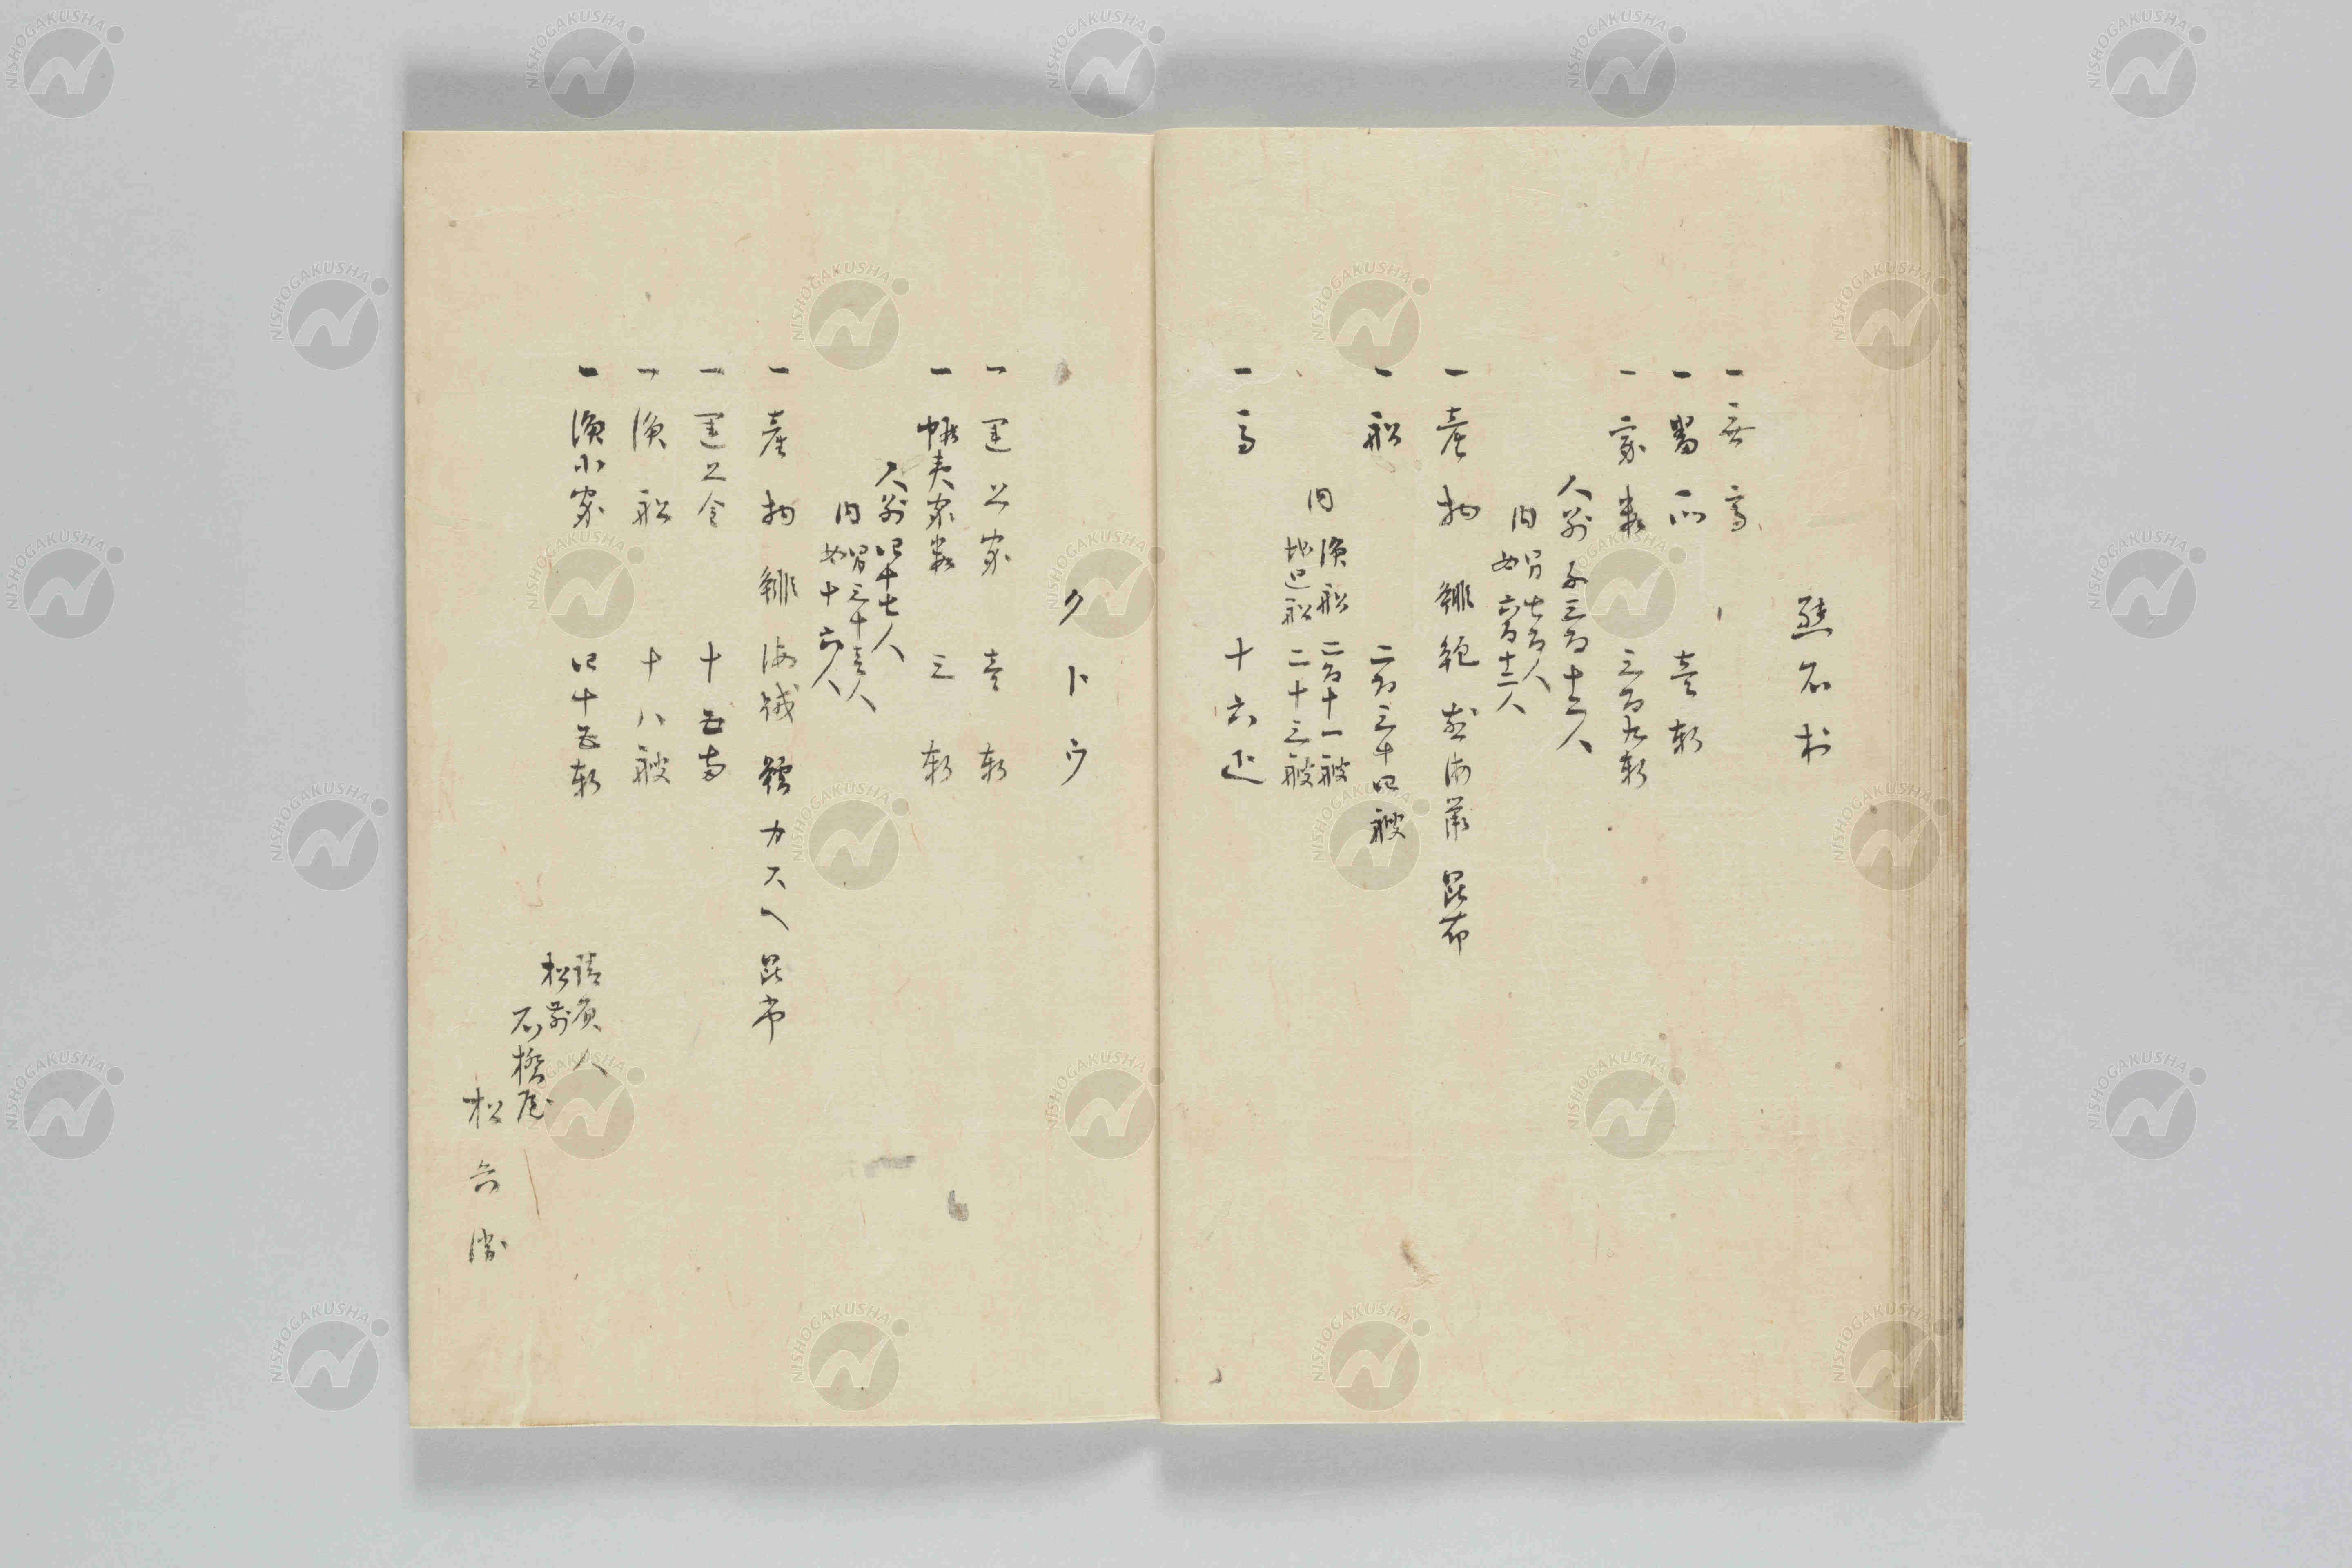 熊石村
一無高
一番所 壱軒
一家数 三百九軒
人別千三百十三人
内
男七百人
女六百十三人
一産物 鯡 鮑 海鼠 昆布
一船 二百三十四艘
内
漁船 二百十一艘
地廻船 二十三艘
一馬 十六疋
クトウ
一運上家 壱軒
一蝦夷家数 三軒
人別四十七人
内
男三十壱人
女十六人
一産物 鯡 海鼠 鱈 カスヘ 昆布
一運上金 十五両
一漁船 十八艘
一漁小家 四十五軒
請負人
松前
石橋屋
松兵衛
NISHOGAKUSHA